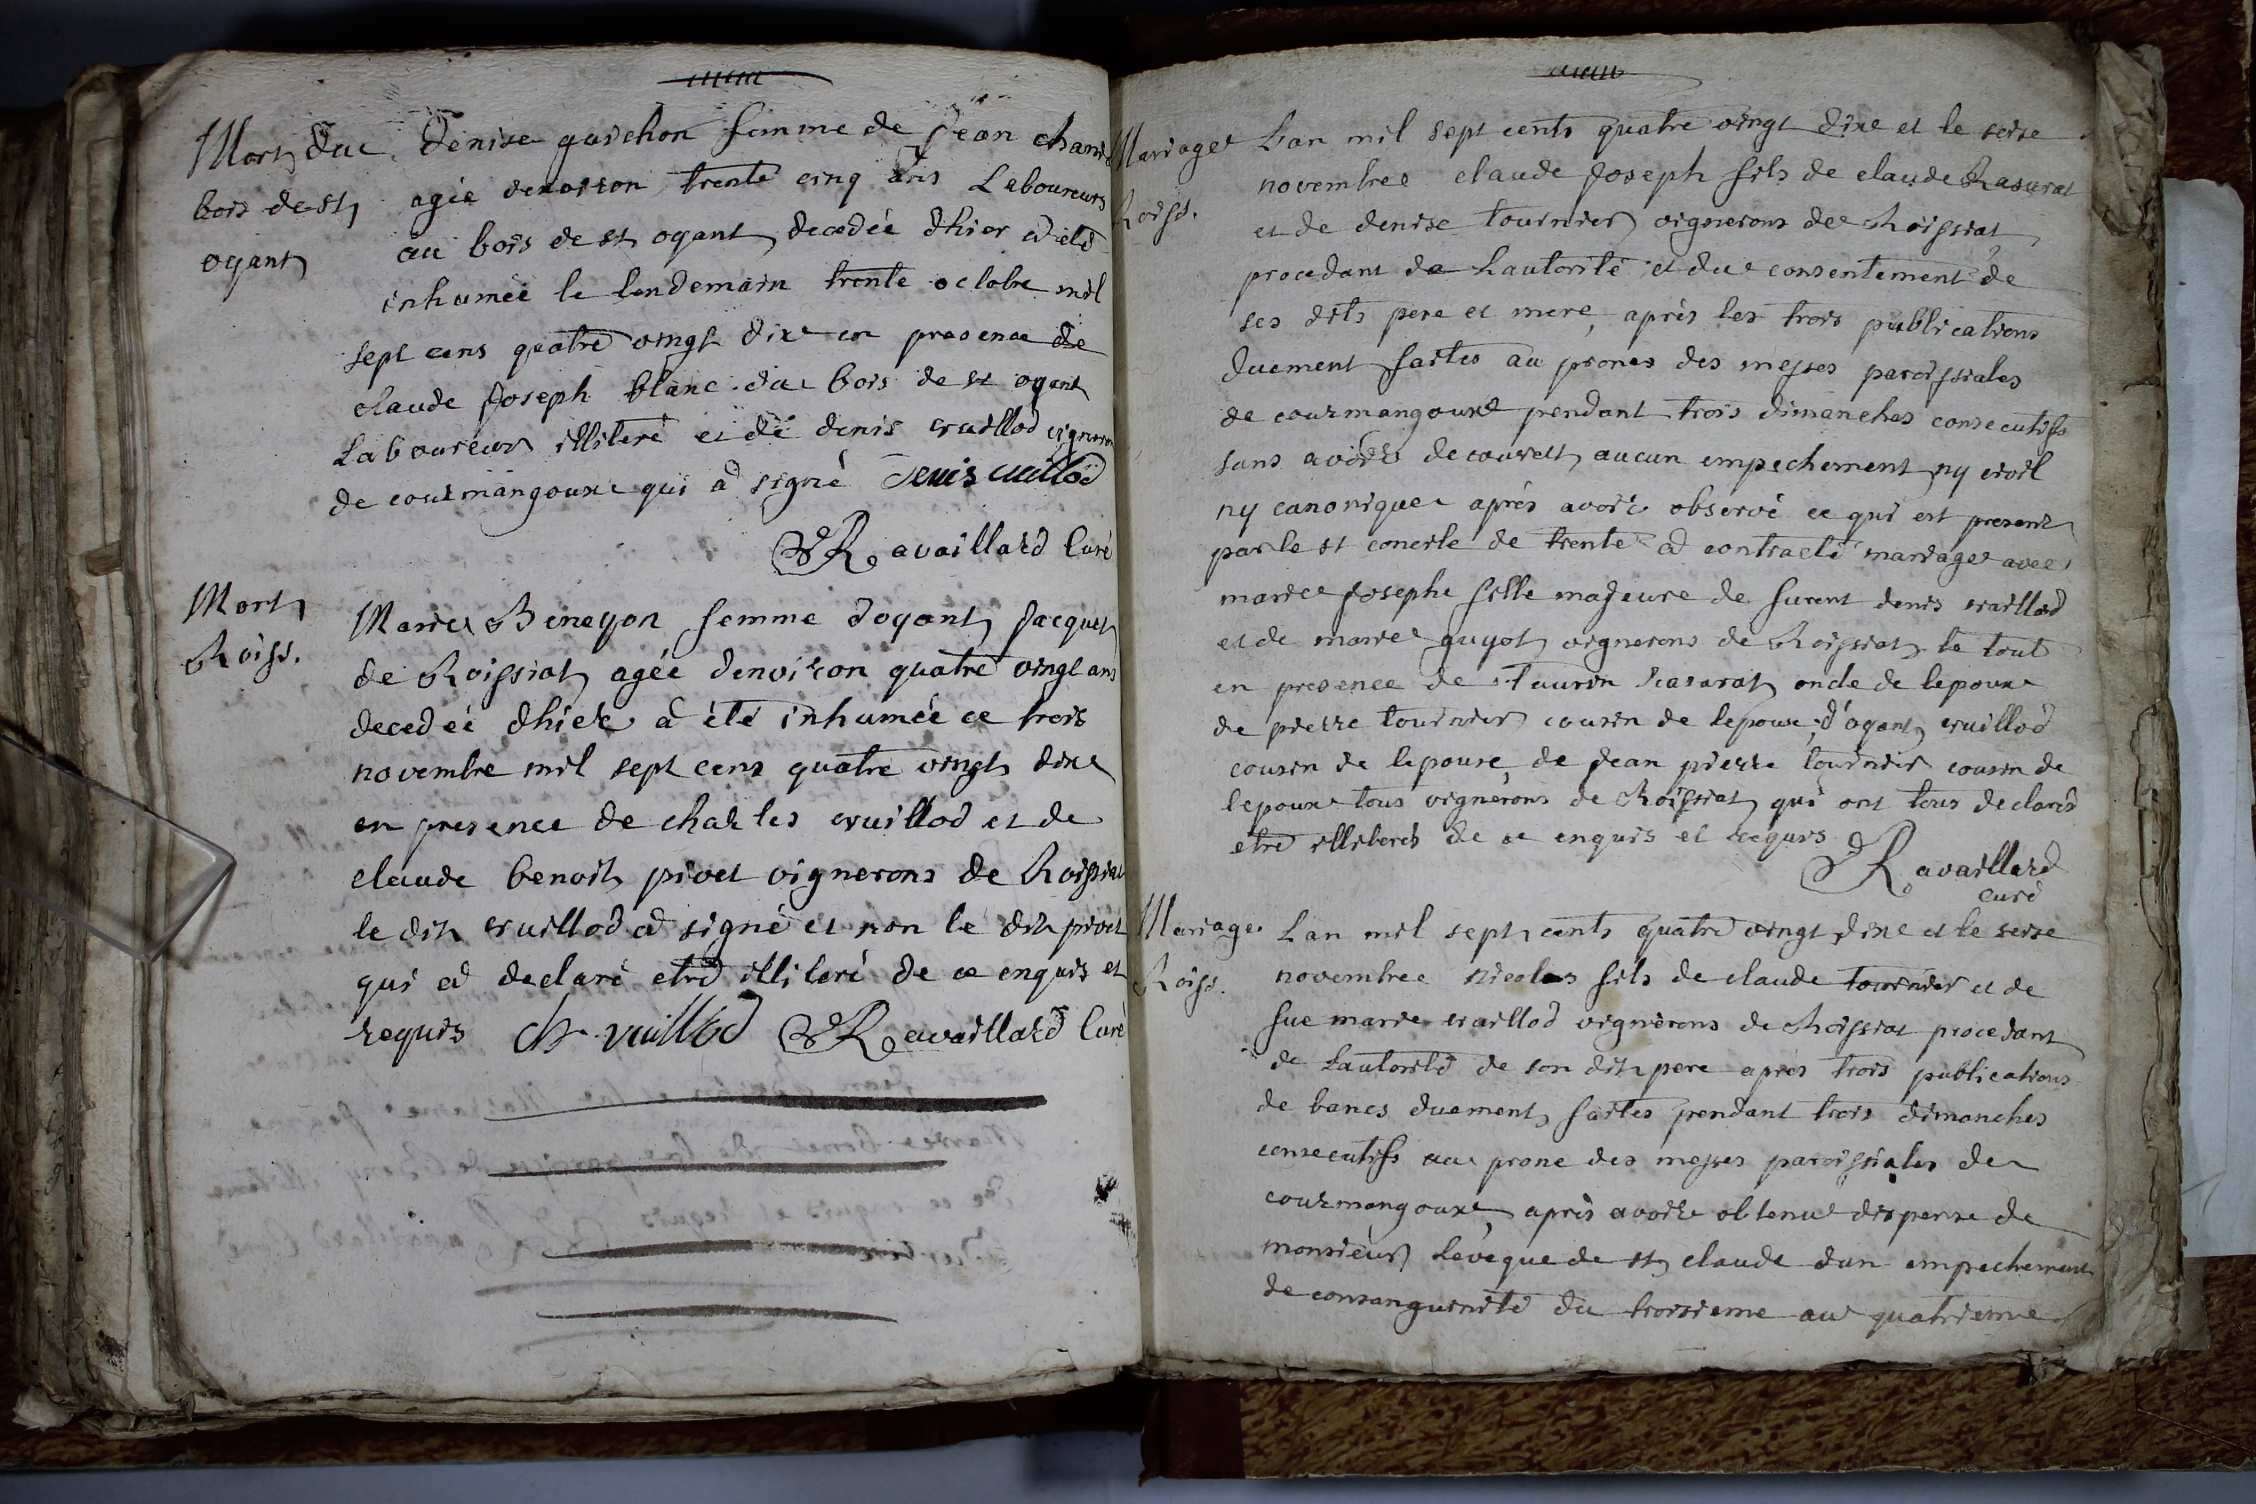 Mort du
bois de st
oyant
Denise guichon femme de Jean
agée denviron trente cinq ans Laboureurs
au bois de st oyant decedée dhier a été
inhumée le lendemain trente octobre mil
sept cens quatre vingt dix en presence de
claude Joseph blanc du bois de st oyant
Laboureur illiteré et de denis vuillod vigneron
de courmangoux qui a signé Denis vuillod
Ravaillard Curé
Mort
Roiss.
Marie Beneyon femme doyant Jacquet
de Roissiat agée denviron quatre vingt ans
decedeé dhier a été inhumée ce trois
novembre mil sept cens quatre vingt dix
en presence de charles vuillod et de
claude benoit pivet vignerons de Roissiat
le dit vuillod a signé et non le dit pivet
qui a declaré etre illiteré de ce enquis et
requis Ch vuillod Ravaillard Curé
Mariage
Roiss.
Lan mil sept cents quatre vingt dix et le seise
novembre claude Joseph fils de claude Rasurat
et de denise tournier vignerons de Roissiat
procedant de Lautorité et du consentement de
ses dits pere et mere, après les trois publications
duement faites au prones des messes paroissiales
de courmangoux pendant trois dimanches consecutifs
sans avoir decouvert aucun empechement ny civil
ny canonique après avoir observé ce qui est prescrit
par le st concile de trente a contracté mariage avec
marie Josephe fille majeure de furent denis vuillod
et de marie guyot vignerons de Roissiat le tout
en presence de Taurin Rasarat oncle de lepoux
de pierre tournier cousin de lepoux, d'oyant vuillod
cousin de lepouse, de Jean pierre tournier cousin de
lepoux tous vignerons de Roissiat qui ont tous declarés
etre illiterés de ce enquis et requis
Ravaillard
curé
Mariage
Roiss.
Lan mil sept cents quatre vingt dix et le seise
novembre nicolas fils de claude tournier et de
fue marie vuillod vignerons de Roissiat procedant
de Lautorité de son dit pere après trois publications
de bancs duement faites pendant trois dimanches
consecutifs au prone des messes paroissiales de
courmangoux, après avoir obtenu dispense de
monsieur Leveque de st claude dun empechement
de consanguinité du troisieme au quatrieme